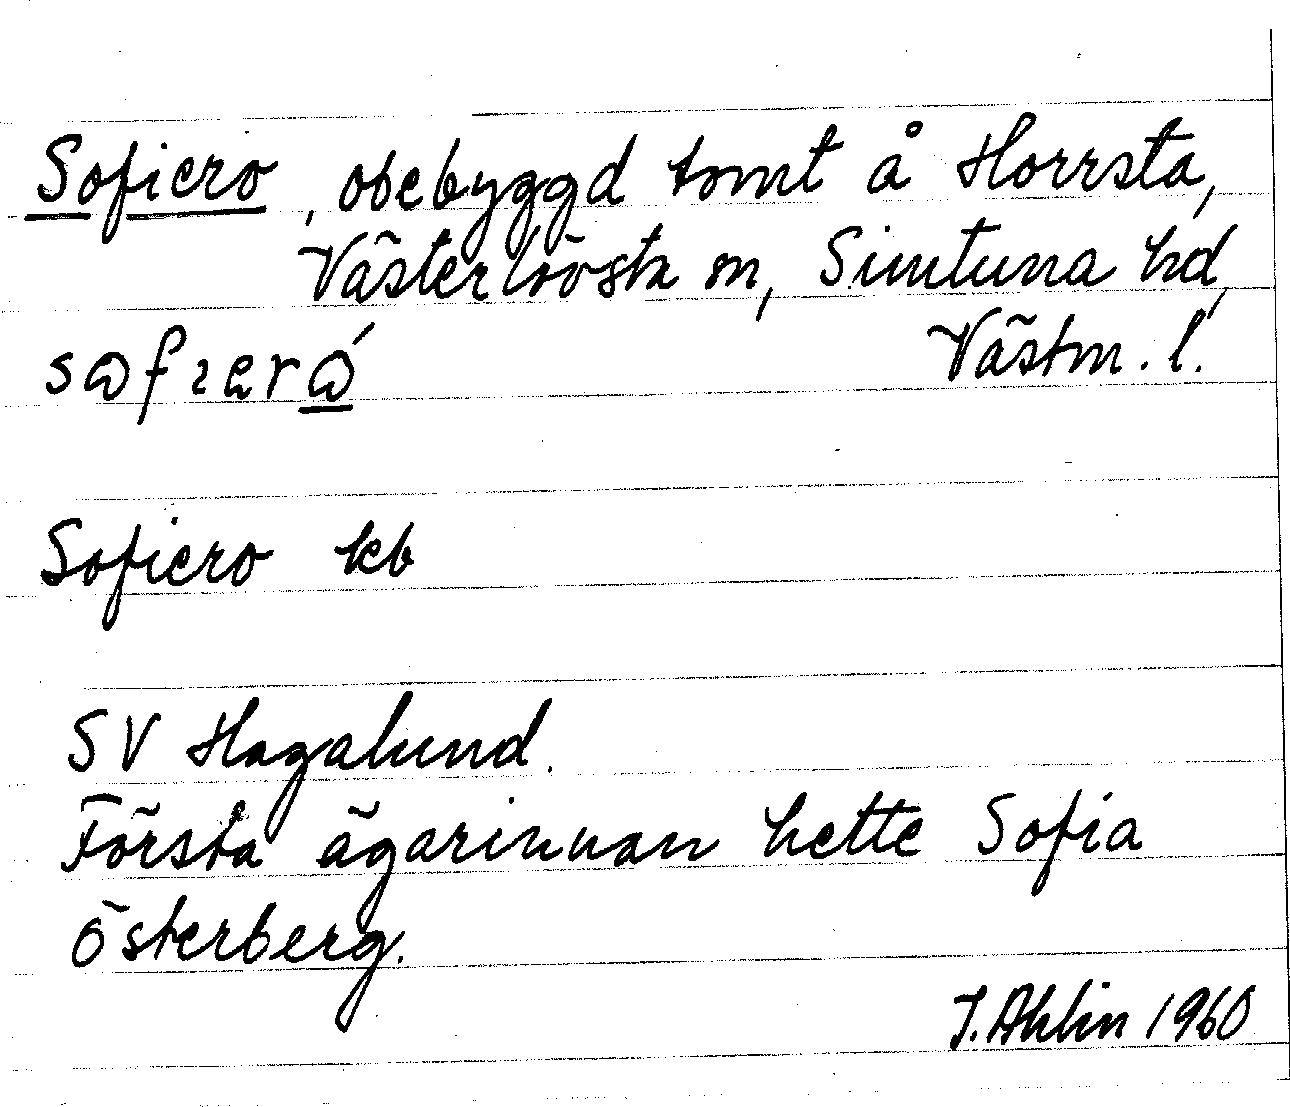 Sofiero, obebyggd tomt å Horrsta,
Västerlövsta sn, Simtuna hd,
Västm. l.
Sofiero kb
SV Hagalund.
Första ägarinnan hette Sofia
Österberg.
J. Ahlin 1960